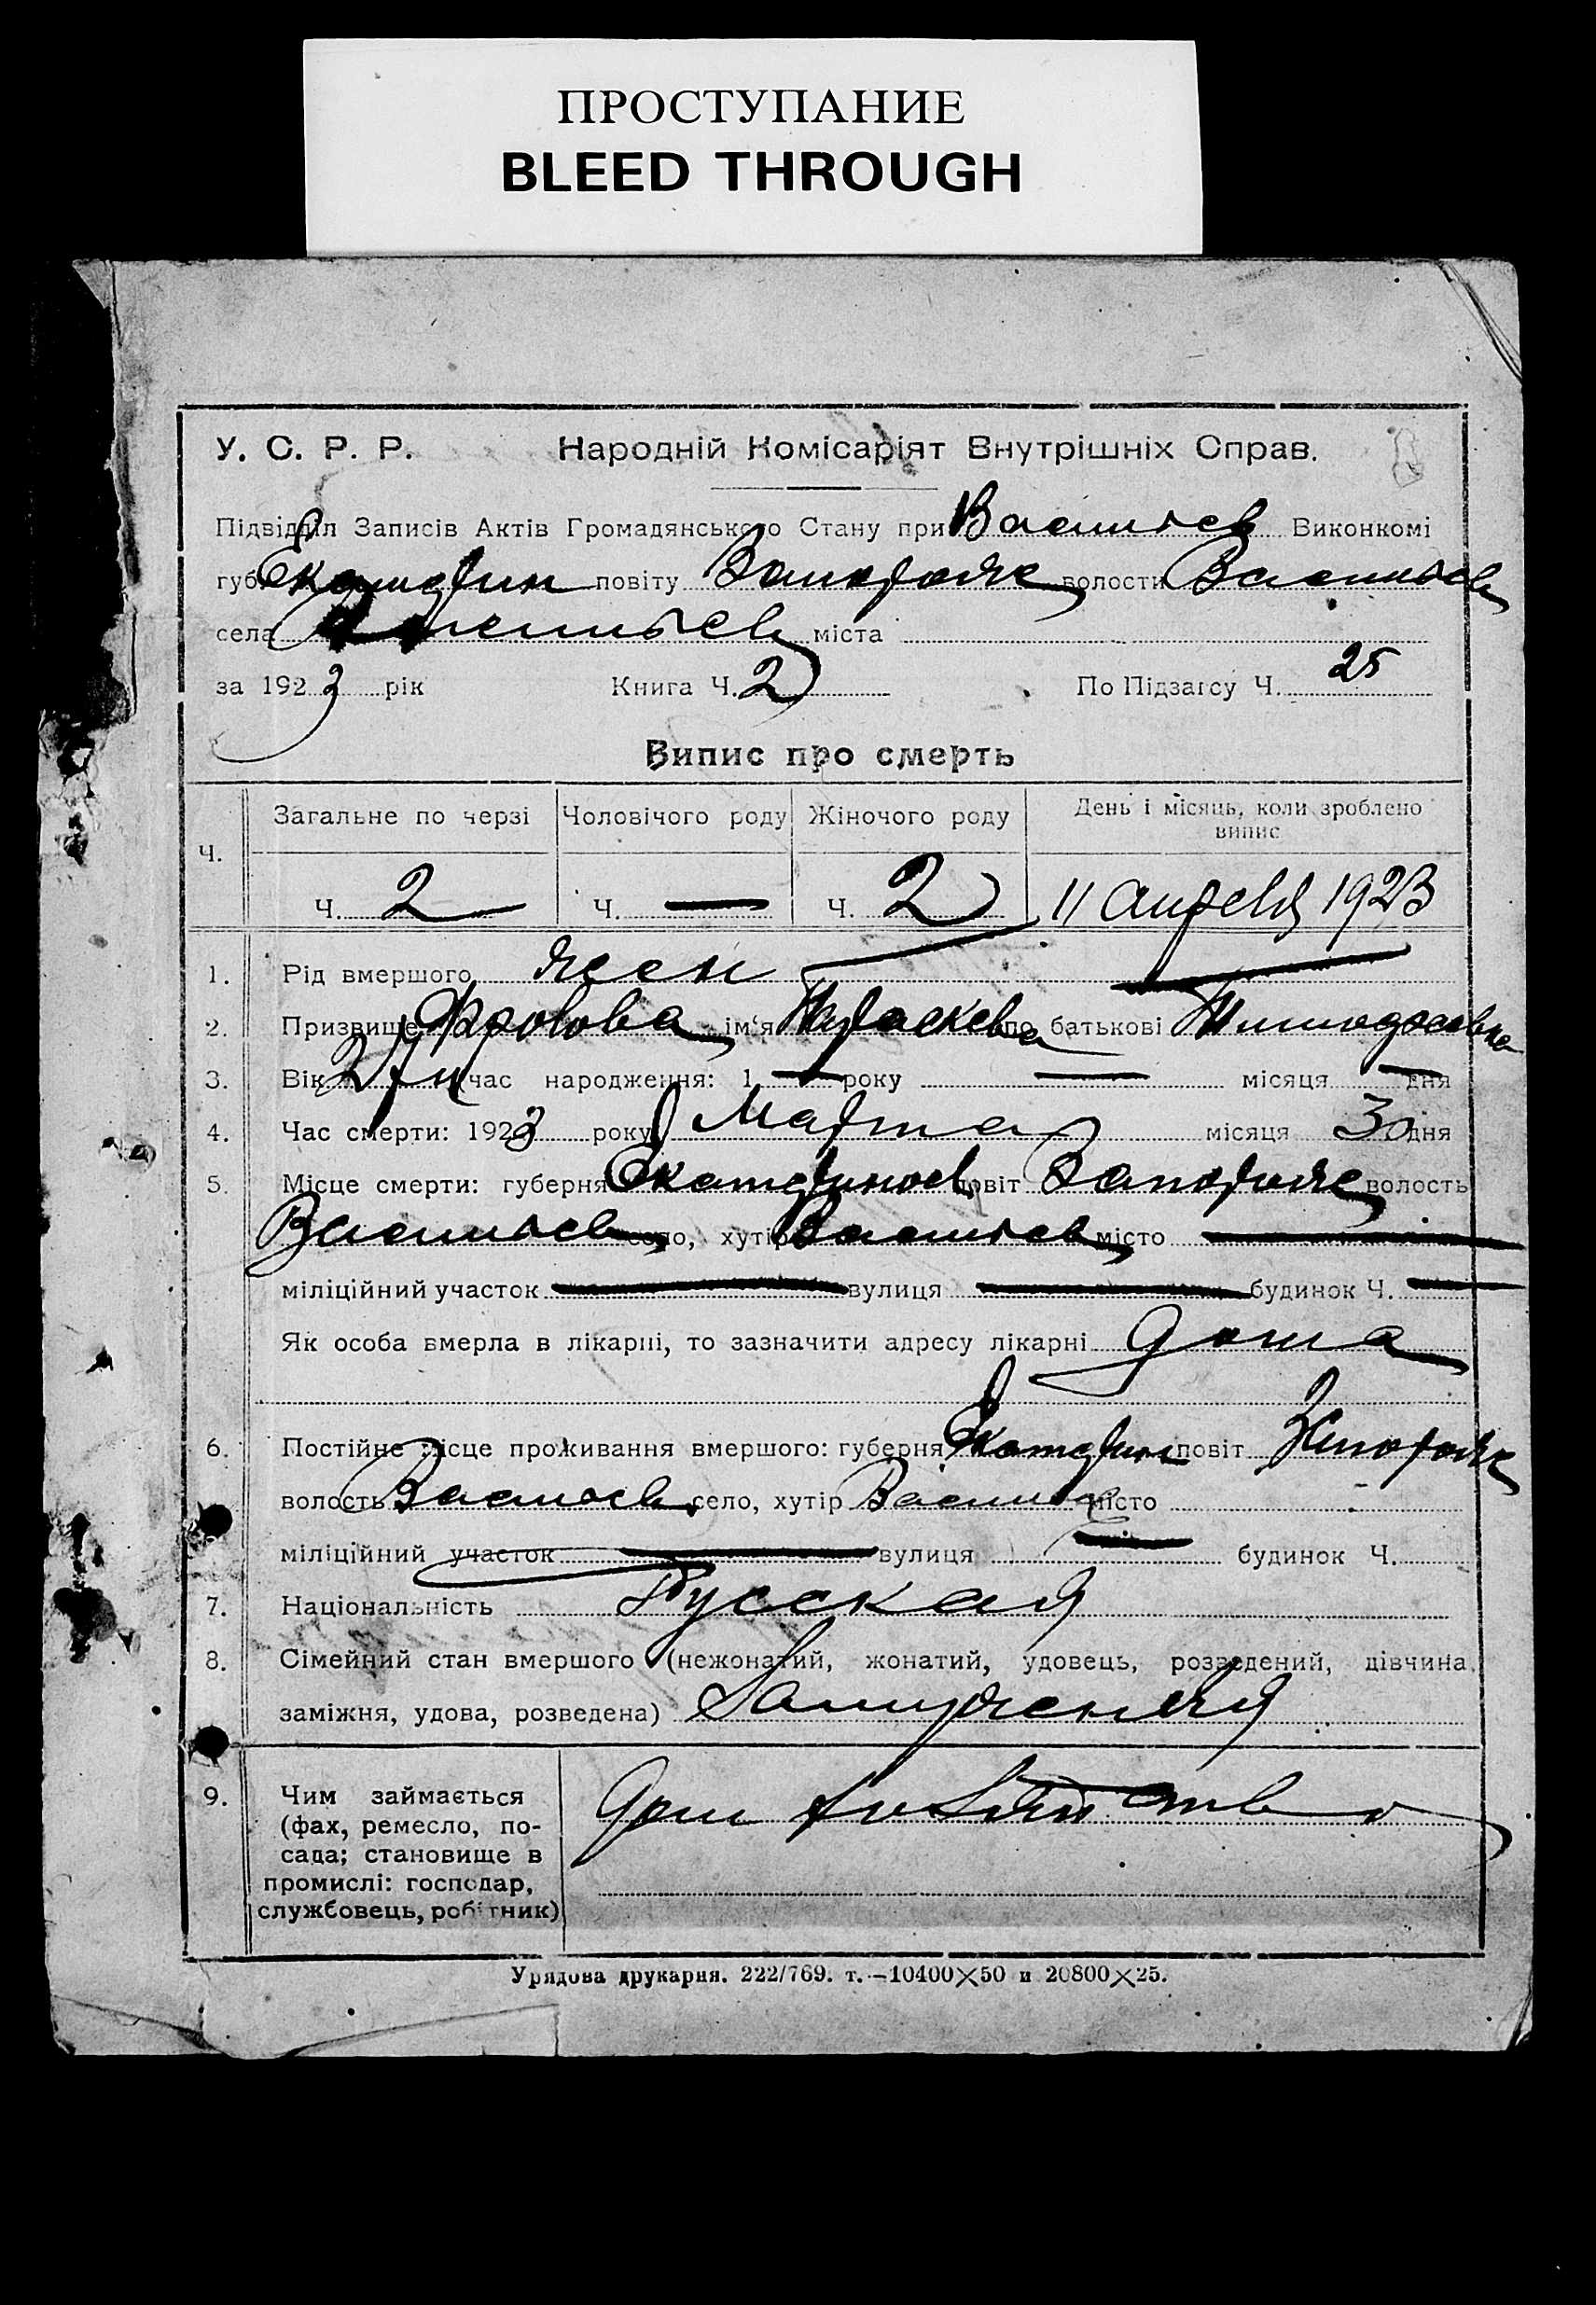 ПРОСТУПАНИЕ
BLEED THROUGH
У. С. Р. Р. Народній Комісаріят Внутрішніх Справ.
Підвідділ Записів Актів Громадянського Стану при Васильев Виконкомі
губ Екатерин повіту Запорож волости Васильев
села Васильев міста
за 1923 рік Книга Ч. 2 По Підзагсу Ч. 25
Випис про смерть
Ч. Загальне по черзі Чоловічого роду Жіночого роду День і місяць, коли зроблено випис
Ч. 2 Ч. — Ч. 2 11 апреля 1923
1. Рід вмершого жен
2. Призвище Фролова ім'я Параскева по батькові
3. Вік час народження: 1 — року — місяця — дня
4. Час смерти: 1923 року Марта місяця 30 дня
5. Місце смерти: губерня Екатеринослав повіт Запорож волость
Васильев село, хутір Васильев місто —
міліційний участок — вулиця — будинок Ч. —
Як особа вмерла в лікарні, то зазначити адресу лікарні дома
6. Постійне місце проживання вмершого: губерня Екатерин повіт Запорож
волость Васильев село, хутір Васильев місто -
міліційний участок — вулиця — будинок Ч.
7. Національність Русская
8. Сімейний стан вмершого (нежонатий, жонатий, удовець, розведений, дівчина,
заміжня, удова, розведена) Замужняя
9. Чим займається
(фах, ремесло, по-
сада; становище в
промислі: господар,
службовець, робітник)
Дом
Урядова друкарня. 222/769. т.—10400×50 и 20800×25.